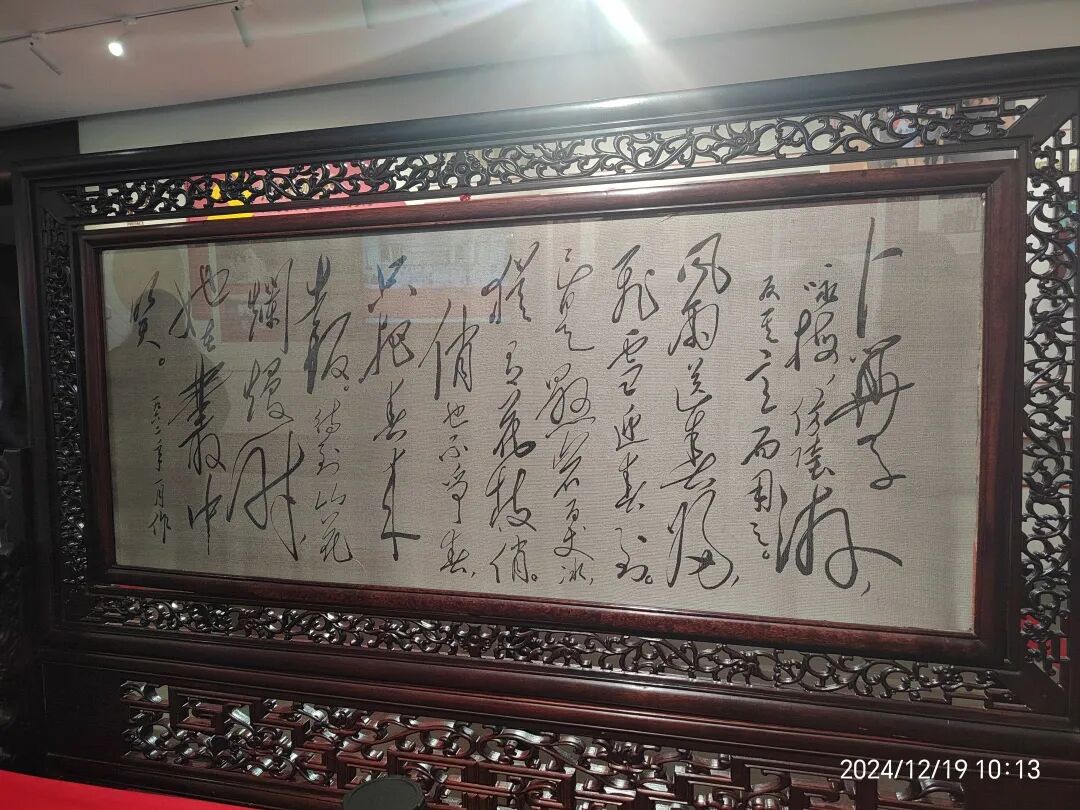 卜算子
咏梅,仿陸游,
反其意而用之。
风雨送春归,
飛雪迎春到。
已是懸岩百丈冰,
猶有花枝俏。
俏也不争春,
只把春来
報。待到山花
爛熳時,
她在叢中
笑。
一九六二年一月作
2024/12/19 10:13